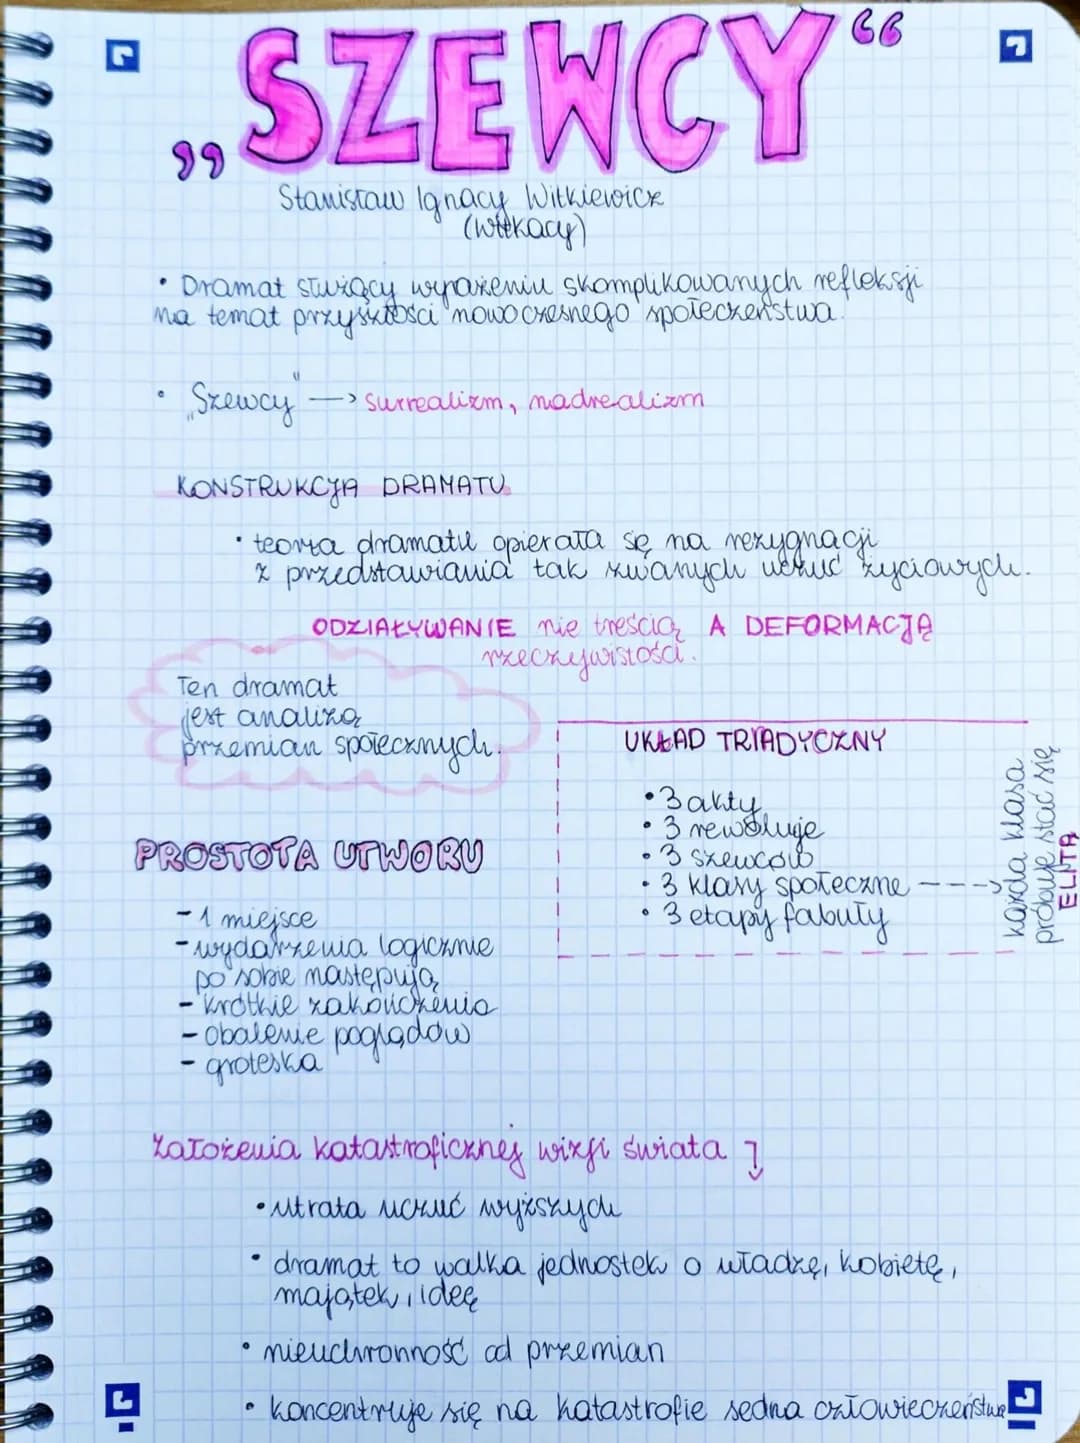 „SZEWCY“
Stanisław Ignacy Witkiewicz
(Witkacy)
• Dramat służący wyrażeniu skomplikowanych refleksji
na temat przyszłości nowoczesnego społeczeństwa.
• „Szewcy" → surrealizm, nadrealizm
KONSTRUKCJA DRAMATU
• teoria dramatu opierała się na rezygnacji
z przedstawiania tak zwanych uczuć życiowych.
ODZIAŁYWANIE nie treścią A DEFORMACJĄ
rzeczywistości.
Ten dramat
jest analizą
przemian społecznych.
UKŁAD TRIADYCZNY
• 3 akty
• 3 rewolucje
• 3 szewców
• 3 klasy społeczne --->
• 3 etapy fabuły
każda klasa
próbuje stać się
ELITĄ
PROSTOTA UTWORU
- 1 miejsce
- wydarzenia logicznie
po sobie następują
- krótkie zakończenia
- obalenie poglądów
- groteska
Założenia katastroficznej wizji świata
• utrata uczuć wyższych
• dramat to walka jednostek o władzę, kobietę,
majątek, ideę
• nieuchronność od przemian
• koncentruje się na katastrofie sedna człowieczeństwa